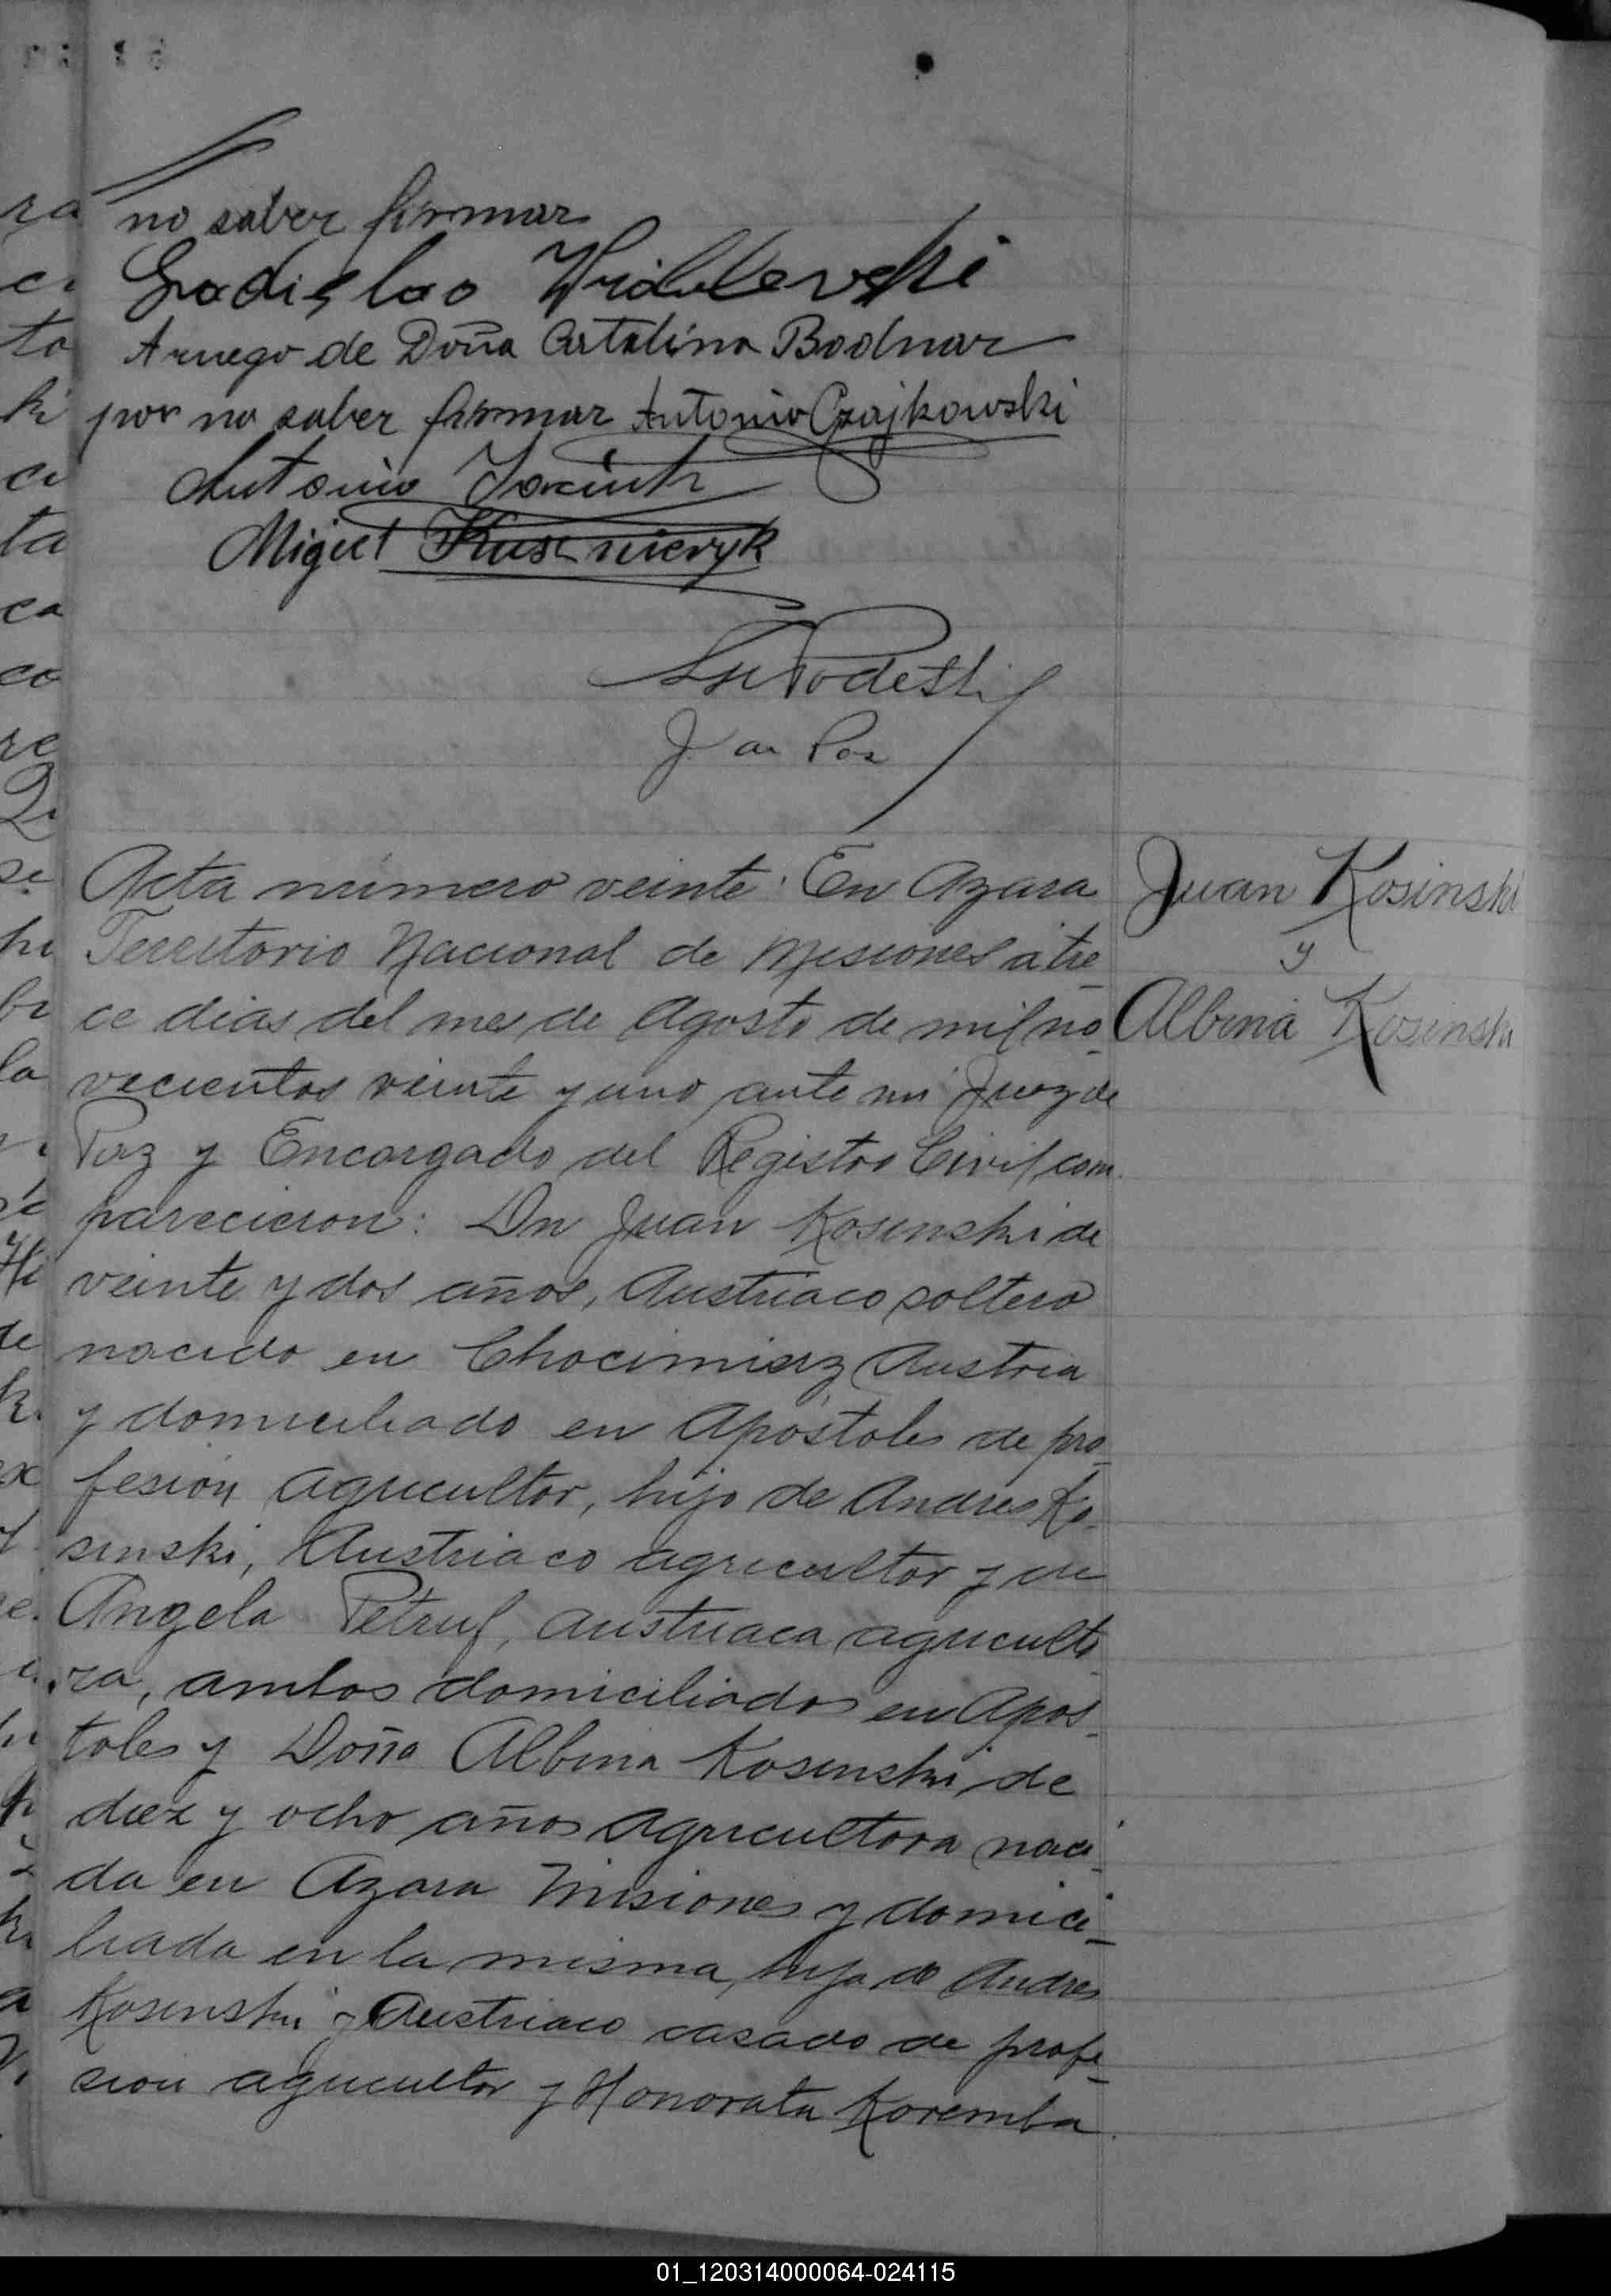 no saber firmar
Ladislao
Aruego de Doña Catalina Bodnar
por no saber firmar Antonio Czajkowski
Antonio
Miguel
Podesti
J de Paz
Acta número veinte: En Azara
Territorio Nacional de Misiones a tre_
ce dias del mes de Agosto de mil no_
vecientos veinte y uno ante mi Juez de
Paz y Encargado del Registro Civil com_
parecieron: Dn Juan Kosinski de
veinte y dos años, Austriaco soltero
nacido en Chocimierz Austria
y domiciliado en Apóstoles de pro_
fesión agricultor, hijo de Andres Ko_
sinski, Austriaco agricultor y de
Angela Petruf, austriaca agriculto_
ra, ambos domiciliados en Apos_
toles y Doña Albina Kosinski de
diez y ocho años agricultora naci_
da en Azara Misiones y domici_
liada en la misma, hija de Andres
Kosinski y Austriaco casado de profe_
sion agricultor y Honorata Koremba
Juan Kosinski
y
Albina Kosinski
01_120314000064-024115